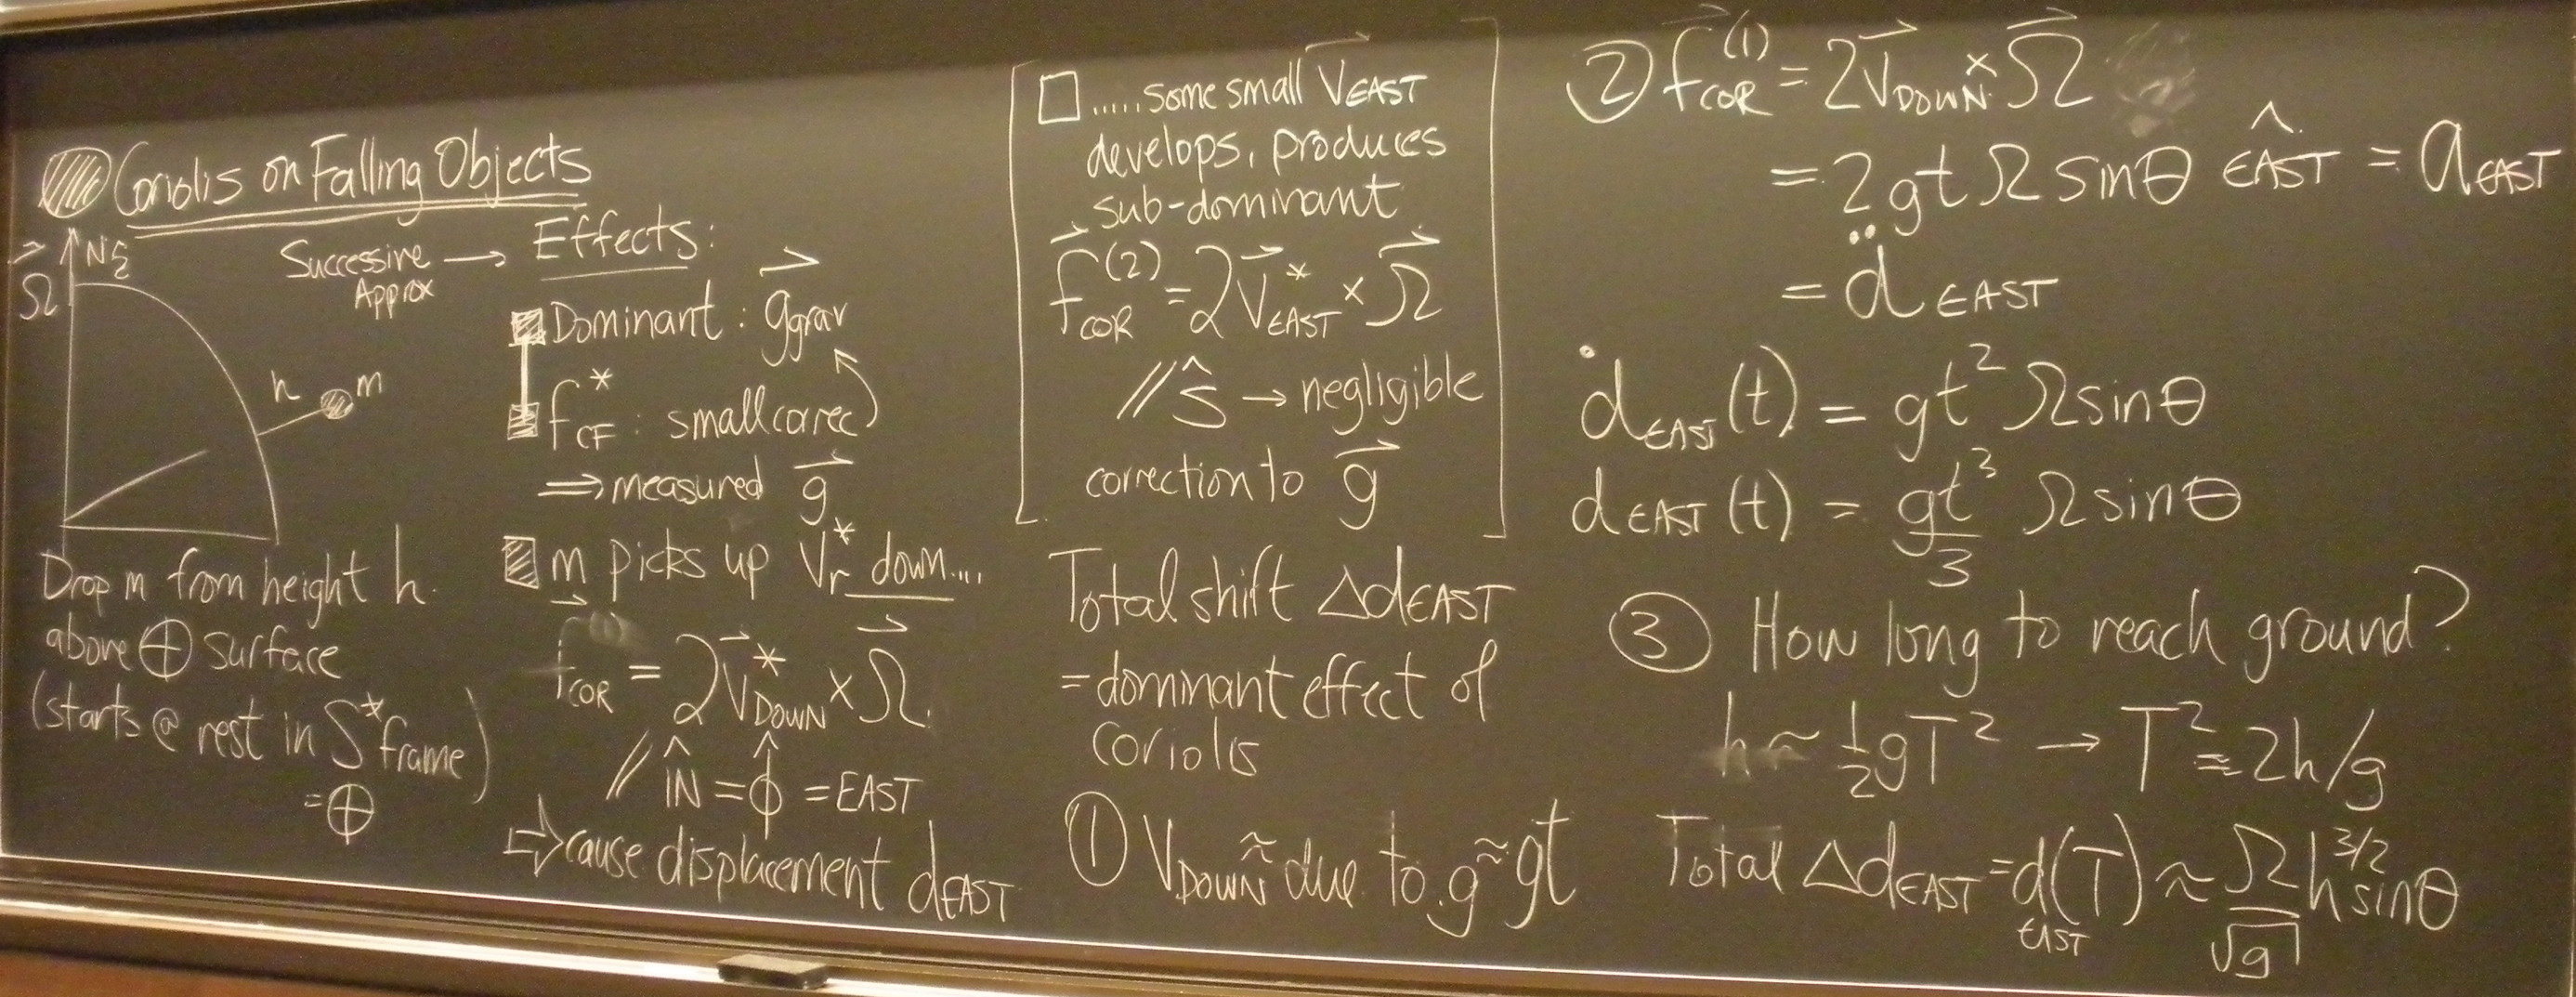 Coriolis on Falling Objects
Ω N
h m
Drop m from height h
above ⊕ surface
(starts @ rest in S* frame)
= ⊕
Successive Approx → Effects:
Dominant : g⃗grav
f*CF : small correc
⇒ measured g⃗
m picks up Vr* down...
f⃗COR = 2V⃗*DOWN × Ω⃗
// ÎN = φ̂ = EAST
⇒ cause displacement dEAST
☐ ..... some small V⃗EAST
develops, produces
sub-dominant
f⃗COR^(2) = 2V⃗*EAST × Ω⃗
// Ŝ → negligible
correction to g⃗
Total shift ΔdEAST
= dominant effect of
Coriolis
① VDOWN ≈ due to g ≈ gt
② f⃗COR^(1) = 2V⃗DOWN × Ω⃗
= 2gtΩ sinθ ÊAST = aEAST
= d̈EAST
ḋEAST(t) = gt² Ω sinθ
dEAST(t) = gt³/3 Ω sinθ
③ How long to reach ground?
h ~ ½gT² → T² ≈ 2h/g
Total ΔdEAST = dEAST(T) ~ Ω/√g h^3/2 sinθ